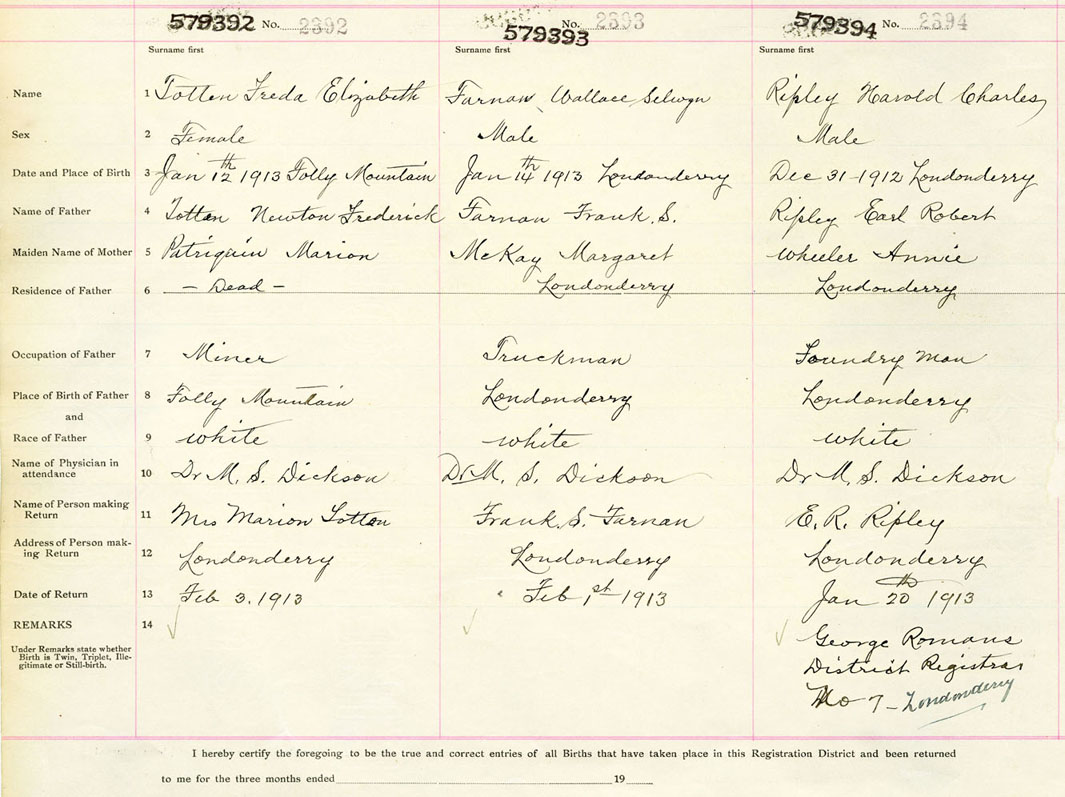 579392 No. 2392 579393 No. 2393 579394 No. 2394
Surname first Surname first Surname first
Name 1 Totten Freda Elizabeth Farnan Wallace Selwyn Ripley Harold Charles
Sex 2 Female Male Male
Date and Place of Birth 3 Jan 12th 1913 Folly Mountain Jan 14th 1913 Londonderry Dec 31-1912 Londonderry
Name of Father 4 Totten Newton Frederick Farnan Frank. S. Ripley Earl Robert
Maiden Name of Mother 5 Patriquin Marion McKay Margaret Wheeler Annie
Residence of Father 6 - Dead - Londonderry Londonderry
Occupation of Father 7 Miner Truckman Foundry Man
Place of Birth of Father 8 Folly Mountain Londonderry Londonderry
and
Race of Father 9 white white white
Name of Physician in
attendance 10 Dr M. S. Dickson Dr M. S. Dickson Dr M. S. Dickson
Name of Person making
Return 11 Mrs Marion Totten Frank. S. Farnan E. R. Ripley
Address of Person mak-
ing Return 12 Londonderry Londonderry Londonderry
Date of Return 13 Feb 3. 1913 Feb 1st 1913 Jan 20th 1913
REMARKS 14
Under Remarks state whether
Birth is Twin, Triplet, Ille-
gitimate or Still-birth.
George Romans
District Registrar
No 7 - Londonderry
I hereby certify the foregoing to be the true and correct entries of all Births that have taken place in this Registration District and been returned
to me for the three months ended 19